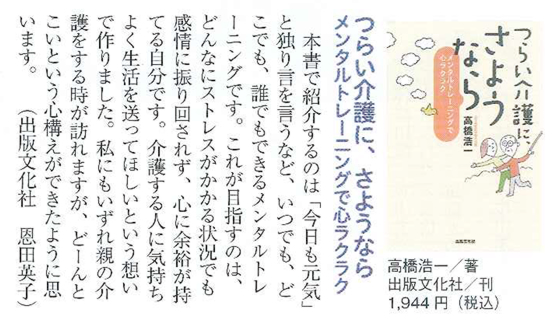 つらい介護に、さようなら
メンタルトレーニングで心ラクラク
本書で紹介するのは「今日も元気」
と独り言を言うなど、いつでも、ど
こでも、誰でもできるメンタルトレ
ーニングです。これが目指すのは、
どんなにストレスがかかる状況でも
感情に振り回されず、心に余裕が持
てる自分です。介護する人に気持ち
よく生活を送ってほしいという想い
で作りました。私にもいずれ親の介
護をする時が訪れますが、どーんと
こいという心構えができたように思
います。（出版文化社　恩田英子）
つらい介護に、
さよう
なら
メンタルトレーニングで
心ラクラク
高橋浩一
出版文化社
高橋浩一／著
出版文化社／刊
1,944円（税込）